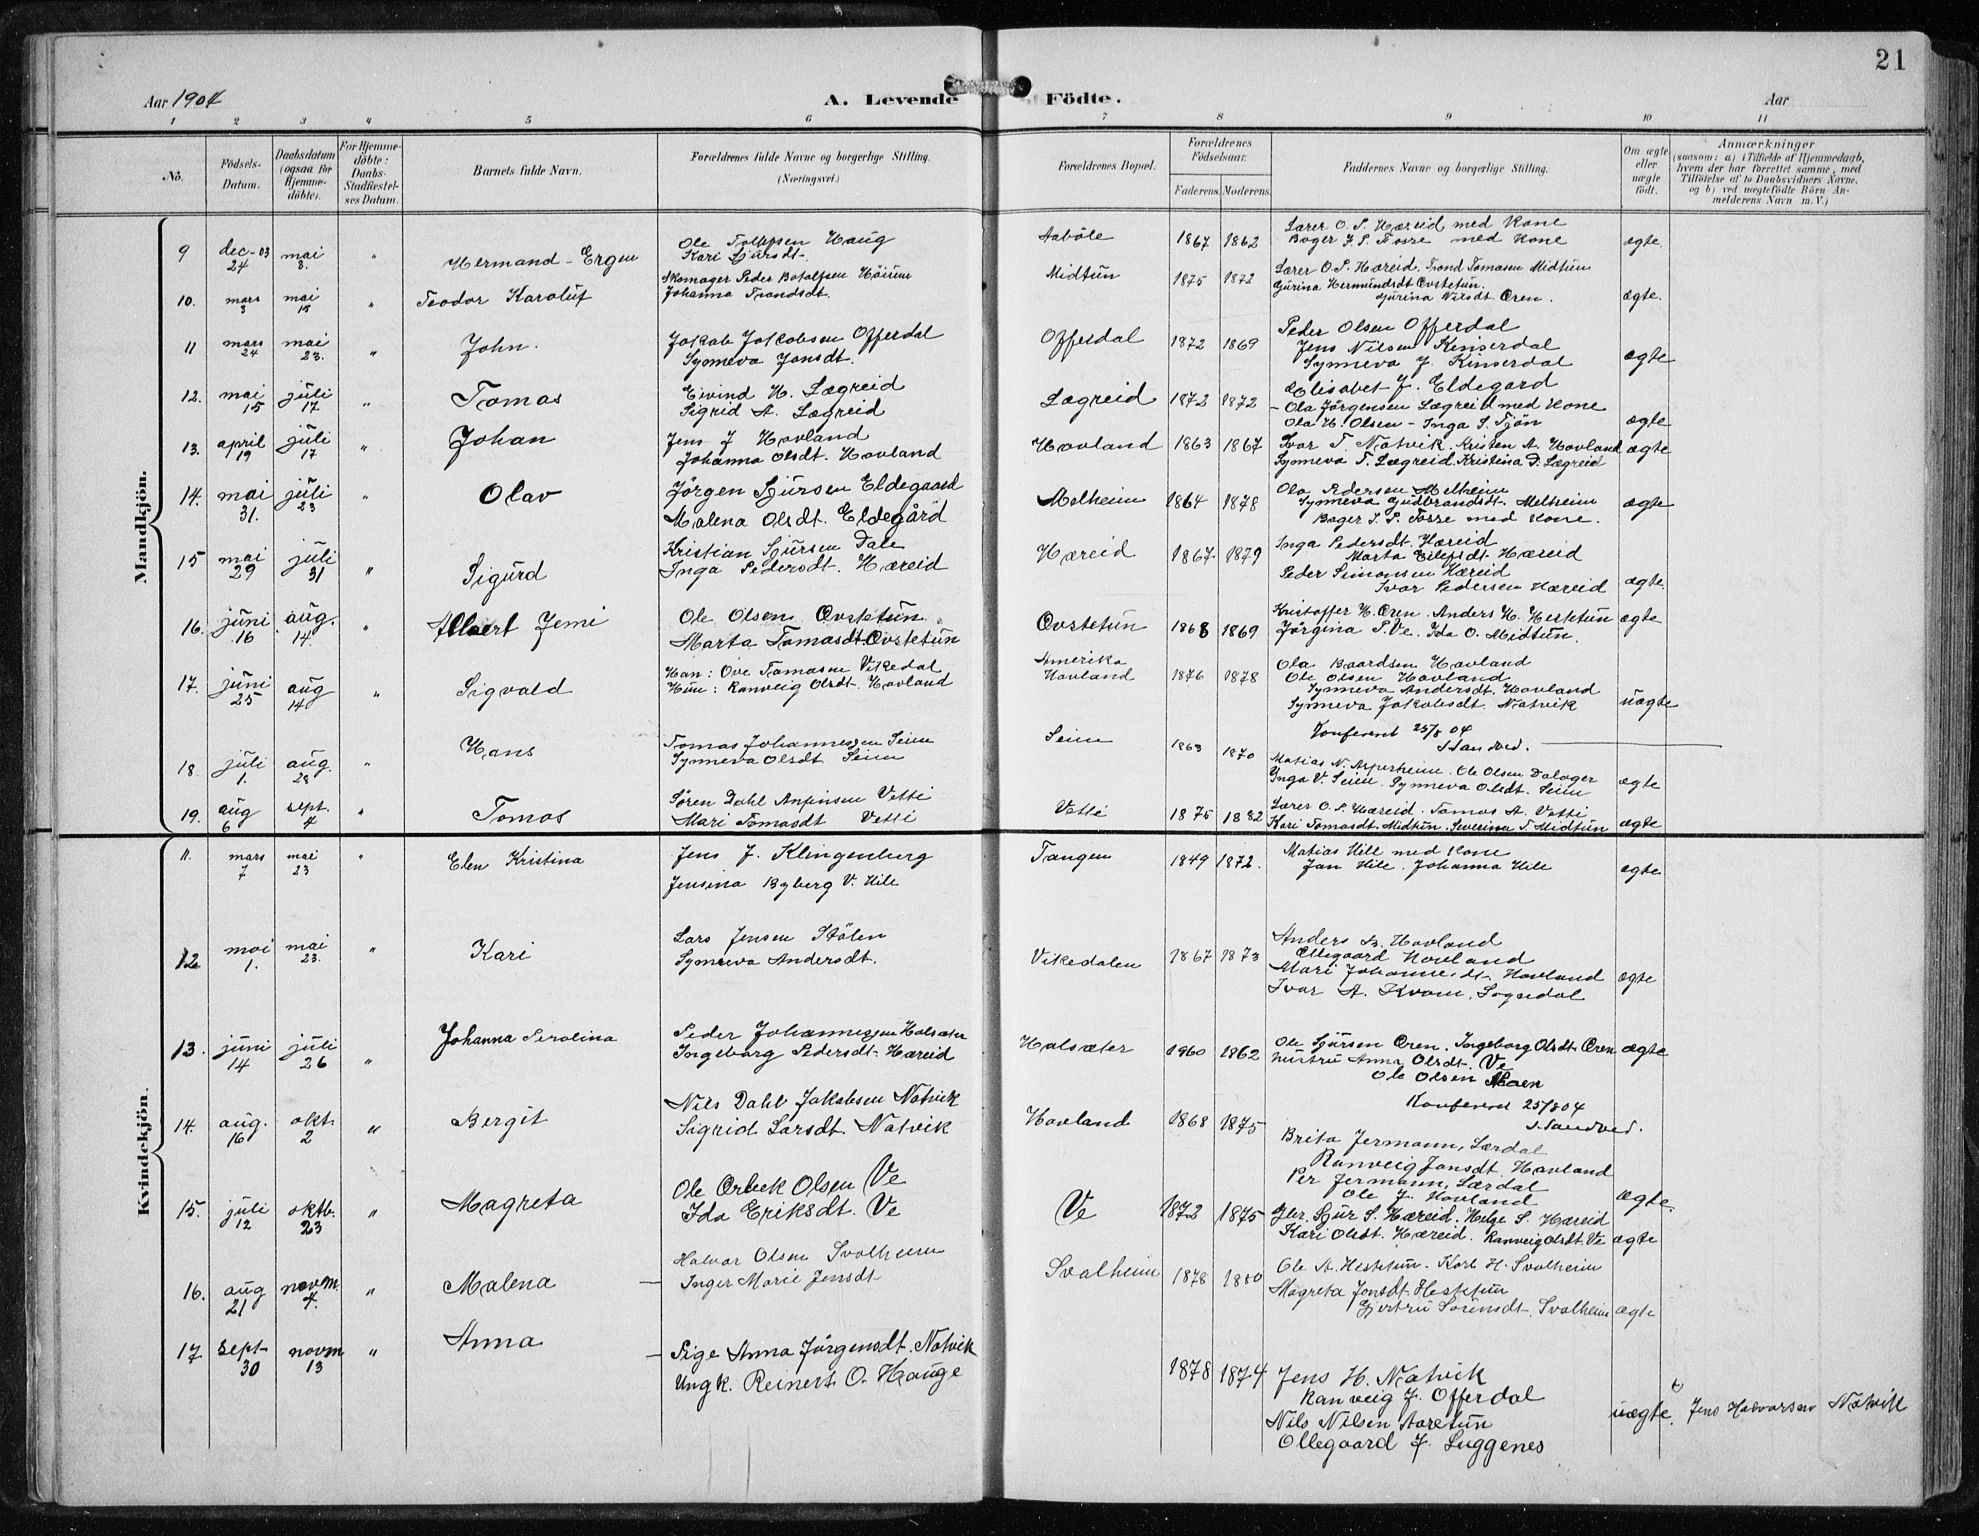 21
Aar 1904
A. Levende Födte.
Aar
1 2 3 4 5 6 7 8 9 10 11
No.
Födsels-Datum.
Daabsdatum (ogsaa for Hjemme-döbte).
For Hjemme-döbte: Daabs-Stadfæstel-ses Datum.
Barnets fulde Navn.
Forældrenes fulde Navne og borgerlige Stilling.
(Næringsvei.)
Forældrenes Bopæl.
Forældrenes Födselsaar.
Faderens. Moderens.
Faddernes Navne og borgerlige Stilling.
Om ægte eller uægte födt.
Anmærkninger
(saasom: a) i Tilfælde af Hjemmedaab,
hvem der har forrettet samme, med
Tilföielse af to Daabsvidners Navne,
og b) ved uægtefödte Börn An-
melderens Navn m. V.)
Mandkjön.
9 dec-03 24 mai 8. " Hermand-Ergen
Ole Tollefsen Haug
Kari Sjursdt.
Aaböle 1867 1862
Lærer O. P. Hæreid med Kone
Bager J. P. Fosse med Kone ægte
10. mars 3 mai 15 " Teodor Karoluf
Skomager Peder Botolfsen Höium
Johanna Trondsdt.
Midtun 1875 1872
Lærer O. P. Hæreid. Trond Tomasen Midtun
Gjurina Hermundsdt Ovstetun.
Gjurina Nilsdt. Øren. ægte.
11 mars 24 mai 23. " John.
Jakob Jakobsen Offerdal
Synneva Jonsdt.
Offerdal 1872 1869
Peder Olsen Offerdal
Jens Nilsen Kinserdal
Synneva J Kinserdal ægte
12. mai 15 juli 17 " Tomas
Eivind H. Lægreid
Sigrid A. Lægreid
Lægreid 1872 1872
Elisabet J. Eldegard
- Ola Jörgensen Lægreid med Kone
Ola H. Olsen - Inga S. Tjön ægte
13. april 19 juli 17 " Johan
Jens J Hovland
Johanna Olsdt. Hovland
Hovland 1863 1867
Ivar T. Natvik. Kristen A. Hovland
Synneva T. Lægreid. Kristina D. Lægreid ægte
14. mai 31. juli 23 " Olav
Jörgen Sjursen Eldegaard
Malena Olsdt. Eldegård
Melheim 1864 1878
Ola Pedersen Melheim
Synneva Gudbrandsdt. Melheim
Bager J. P. Fosse med Kone. ægte
15 mai 29 juli 31 " Sigurd
Kristian Sjursen Dale
Inga Pedersdt. Hæreid
Hæreid 1867. 1879
Inga Pedersdt. Hæreid
Marta Eilefsdt. Hæreid
Peder Simonsen Hæreid
Ivar Pedersen Hæreid ægte
16. juni 16 aug. 14. " Albert Jemi
Ole Olsen Ovstetun
Marta Tomasdt. Ovstetun
Ovstetun 1868 1869
Kristoffer H. Øren. Anders H. Hestetun
Jörgina P. Ve. Ida O. Midtun. ægte
17. juni 25 aug 14 " Sigvald
Han: Ove Tomasen Vikedal
Hun: Ranveig Olsdt. Hovland
Amerika
Hovland 1876 1878
Ola Baardsen Hovland
Ole Olsen Hovland
Synneva Andersdt. Hovland
Synneva Jakobsdt. Natvik uægte
Konferert 25/8 04
J. Sandved.
18. juli 1. aug. 28 " Hans
Tomas Johannessen Seim
Synneva Olsdt Seim
Seim 1863 1870
Matias N. Asperheim. Ole Olsen Dalager
Inga V. Seim. Synneva Olsdt. Seim ægte
19. aug 6 sept. 4 " Tomas
Sören Dahl Anfinsen Vetti
Mari Tomasdt Vetti
Vetti 1875 1882
Lærer O. P. Hæreid. Tomas A. Vetti
Kari Tomasdt. Midtun. Severina T. Midtun ægte
Kvindekjön.
11. mars 7 mai 23 " Elen Kristina
Jens J. Klingenberg
Jensina Byberg V. Hile
Tangen 1849 1872.
Matias Hile med Kone
Jan Hile. Johanna Hile ægte
12 mai 1. mai 23. " Kari
Lars Jensen Stölen
Synneva Andersdt.
Vikedalen 1867 1873
Anders B. Hovland
Ellegaard Hovland
Mari Johannesdt. Hovland
Ivar A. Kvam, Sogndal ægte
13. juni 14 juli 26 " Johanna Perolina
Peder Johannessen Halsæter
Ingeborg Pedersdt. Hæreid
Halsæter 1860 1862
Ole Sjursen Øren. Ingeborg Olsdt. Øren
hustru Anna Olsdt. Ve
Ole Olsen Moen ægte
Konferert 25/8 04
J. Sandved.
14. aug. 16 okt. 2 " Bergit
Nils Dahl Jakobsen Natvik
Sigrid Larsdt. Natvik
Hovland 1868 1875
Brita Jermann, Lærdal
Ranveig Jonsdt. Hovland
Per Jermann, Lærdal
Ole J. Hovland ægte.
15. juli 12 oktb. 23 " Magreta
Ole Orbek Olsen Ve
Ida Eriksdt. Ve
Ve 1872 1875
Gbr. Sjur S. Hæreid. Helge S. Hæreid
Kari Olsdt. Hæreid. Ranveig Olsdt. Ve ægte
16. aug 21 novm. 4. " Malena
Halvor Olsen Svalheim
Inger Marie Jensdt
Svalheim 1878 1880
Ole A. Hestetun. Karl H. Svalheim
Magreta Jonsdt. Hestetun
Gjertru Sörensdt. Svalheim ægte
17 sept 30 novm 13 " Anna
Pige Anna Jörgensdt. Natvik
Ungk. Reinert O. Hauge
1878 1874
Jens H. Natvik
Ranveig J. Offerdal
Nils Nilsen Aaretun
Ollegaard J. Luggenes
uægte. Jens Halvorsen Natvik